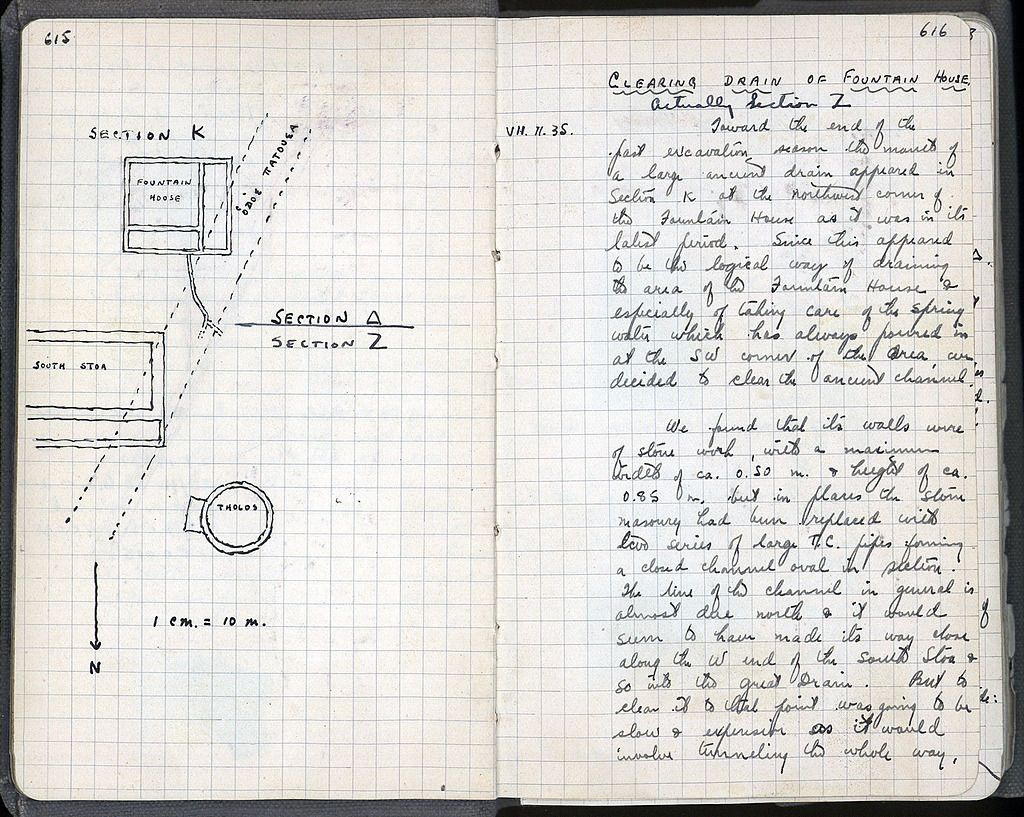 615
SECTION K
FOUNTAIN
HOUSE
ὉΔΟΣ ΠΑΤΟΥΣΑ
SECTION Δ
SECTION Z
SOUTH STOA
THOLOS
1 cm. = 10 m.
N
616
CLEARING DRAIN OF FOUNTAIN HOUSE
Actually Section Z
VII. 11. 35.
Toward the end of the
past excavation season the mouth of
a large ancient drain appeared in
Section K at the northwest corner of
the Fountain House as it was in its
latest period. Since this appeared
to be the logical way of draining
the area of the Fountain House &
especially of taking care of the spring
water which has always poured in
at the SW corner of the area we
decided to clear the ancient channel.
We found that its walls were
of stone work, with a maximum
width of ca. 0.50 m. & height of ca.
0.85 m. but in places the stone
masonry had been replaced with
two series of large T.C. pipes forming
a closed channel oval in section.
The line of the channel in general is
almost due north & it would
seem to have made its way close
along the W end of the South Stoa &
so into the Great Drain. But to
clear it to that point was going to be
slow & expensive as it would
involve tunneling the whole way.